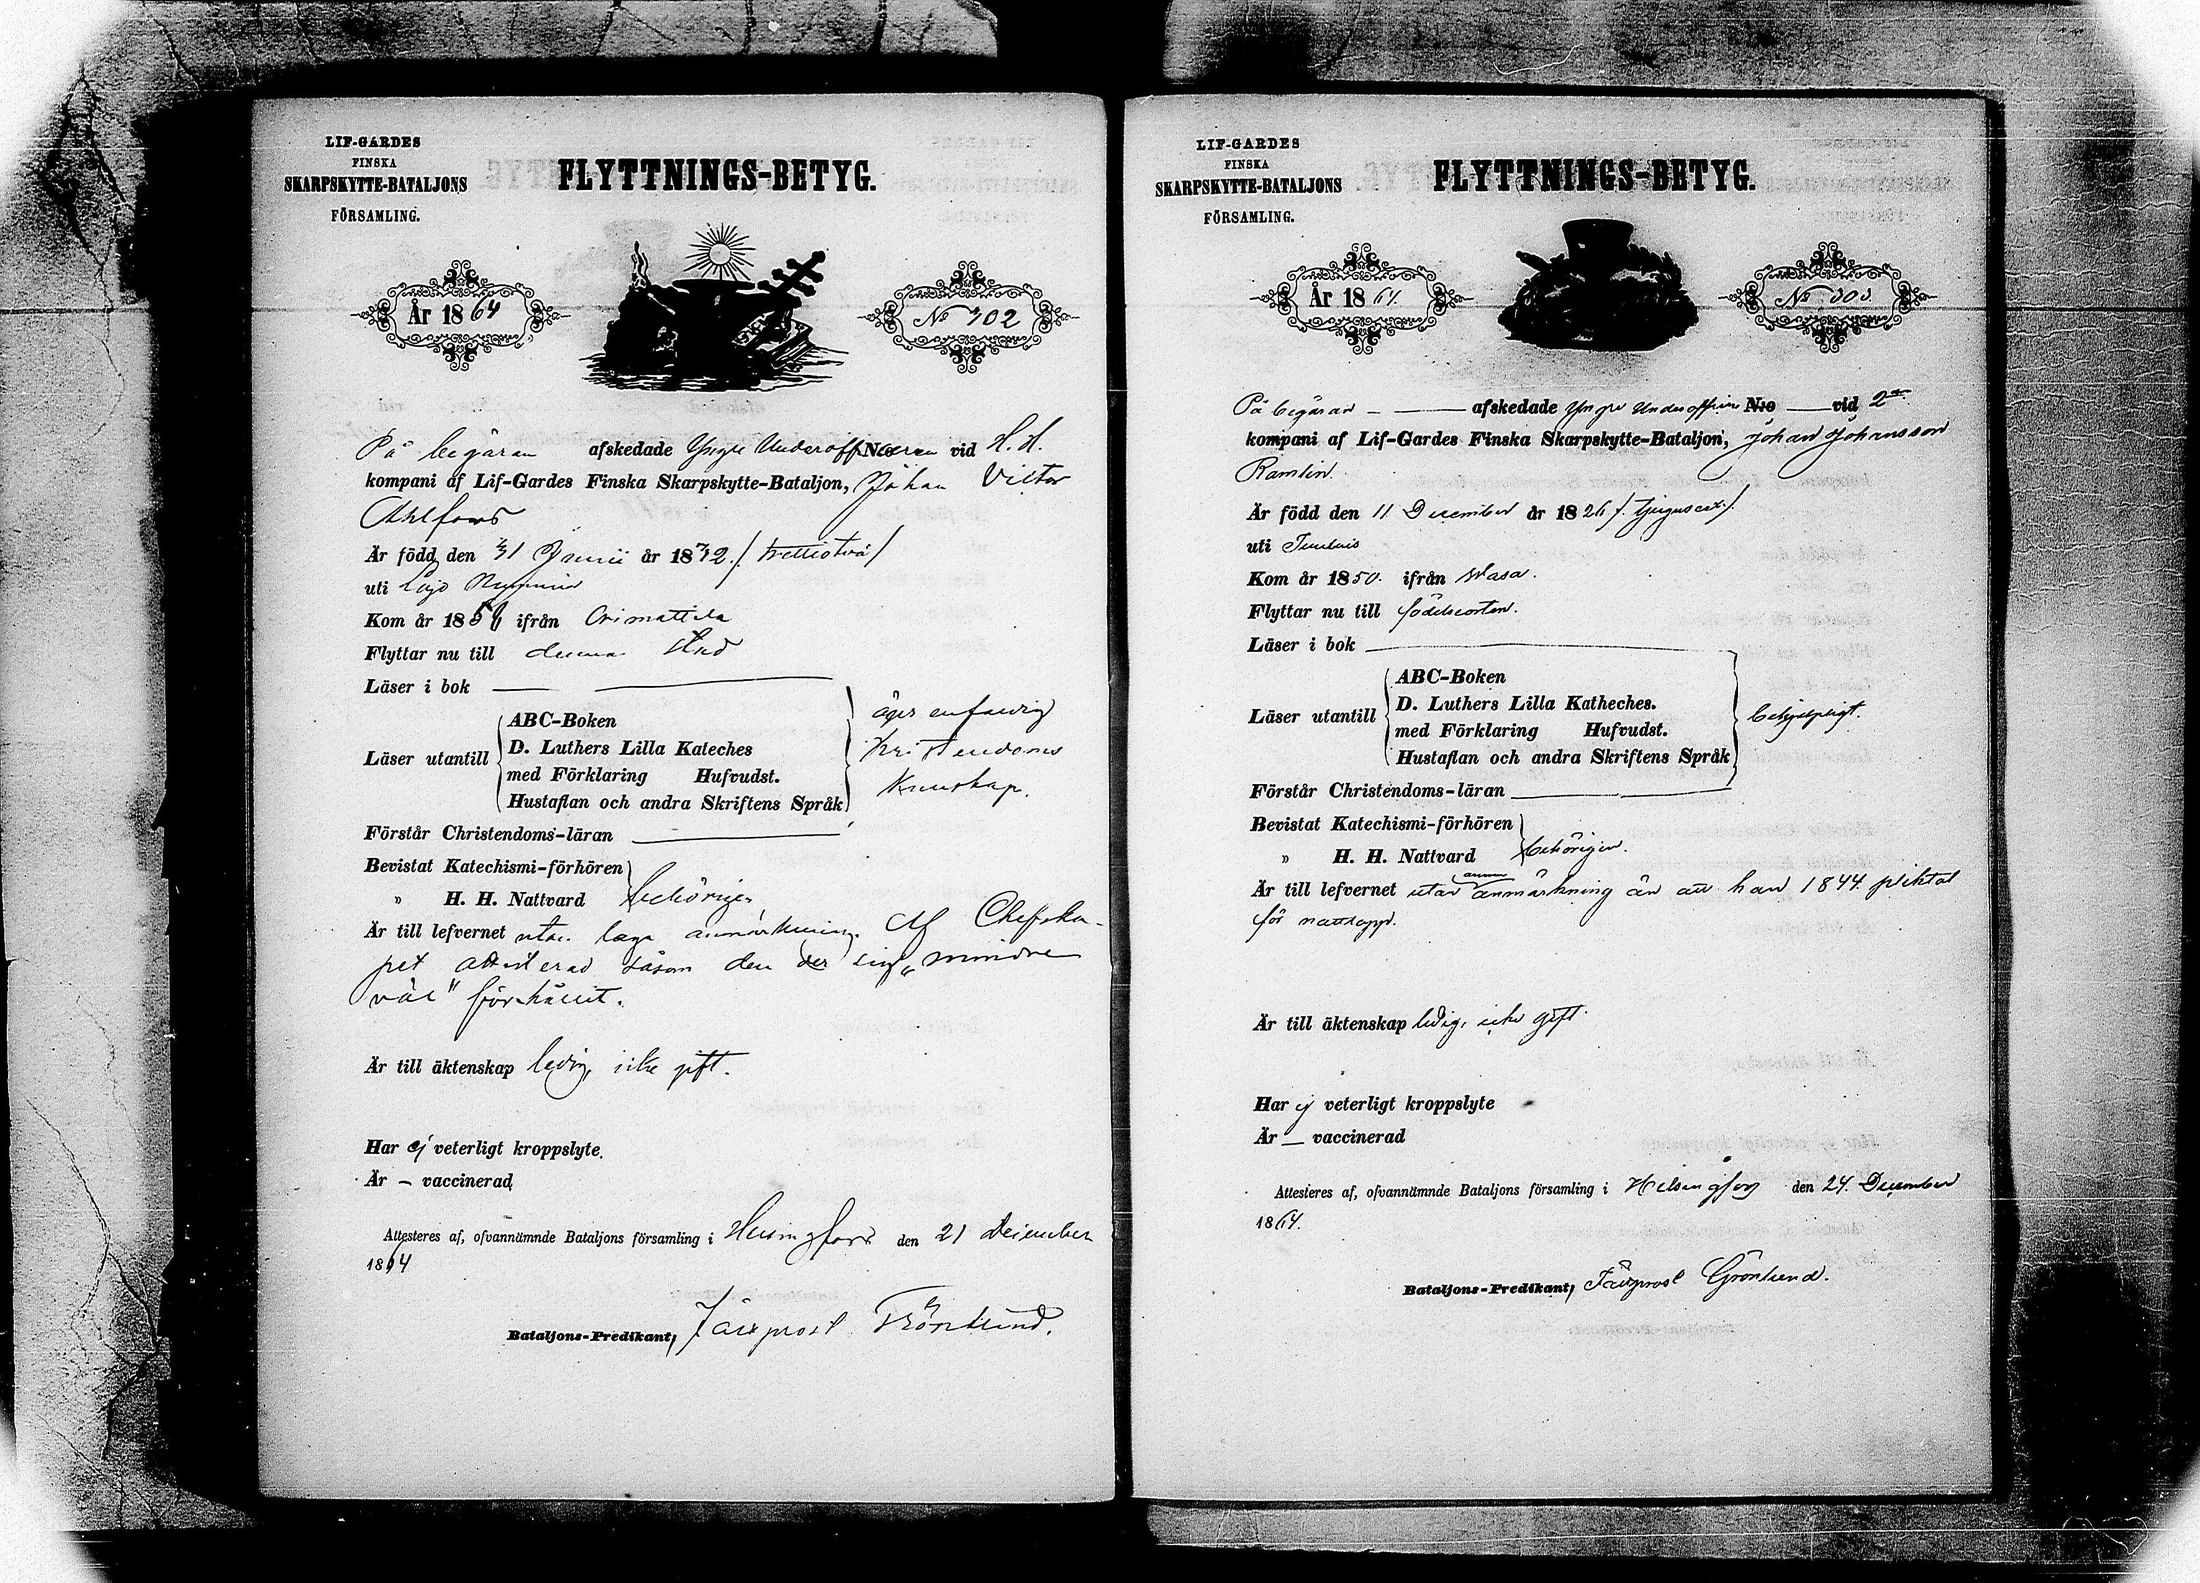 LIF-GARDES
FINSKA
SKARPSKYTTE-BATALJONS
FÖRSAMLING.
FLYTTNINGS-BETYG.
År 1864
No 302
På begäran afskedade Yngre Underoff. vid H. H.
kompani af Lif-Gardes Finska Skarpskytte-Bataljon, Johan Victor
Ahlfors
Är född den 31 år 1832 /: trettiotvå /
uti
Kom år 185 ifrån Orimattila
Flyttar nu till denna stad
Läser i bok
Läser utantill
ABC-Boken
D. Luthers Lilla Kateches
med Förklaring Hufvudst.
Hustaflan och andra Skriftens Språk
äger enfaldig
kristendoms
kunskap.
Förstår Christendoms-läran
Bevistat Katechismi-förhören
" H. H. Nattvard behörigen
Är till lefvernet utan laga anmärkning. Af Chefska-
pet attesterad såsom den der sig „mindre
väl" förhållit.
Är till äktenskap ledig, icke gift.
Har ej veterligt kroppslyte.
Är — vaccinerad
Attesteres af, ofvannämnde Bataljons församling i Helsingfors den 21 December
1864
Bataljons-Predikant, Fältprost Grönlund.
LIF-GARDES
FINSKA
SKARPSKYTTE-BATALJONS
FÖRSAMLING.
FLYTTNINGS-BETYG.
År 1864.
No 303.
På begäran — — afskedade Yngre Underofficer N:o — vid 2
kompani af Lif-Gardes Finska Skarpskytte-Bataljon, Johan Johansson
Ramlin.
Är född den 11 December år 1826 /: tjugusex :/
uti
Kom år 1850. ifrån Wasa.
Flyttar nu till födelseorten.
Läser i bok
Läser utantill
ABC-Boken
D. Luthers Lilla Katheches.
med Förklaring Hufvudst.
Hustaflan och andra Skriftens Språk
behjelpligt.
Förstår Christendoms-läran
Bevistat Katechismi-förhören
" H. H. Nattvard behörigen.
Är till lefvernet utan annan anmärkning än att han 1844 pliktat
för nattlopp.
Är till äktenskap ledig, icke gift.
Har ej veterligt kroppslyte
Är — vaccinerad
Attesteres af, ofvannämnde Bataljons församling i Helsingfors den 24. December
1864.
Bataljons-Predikant, Fältprost Grönlund.